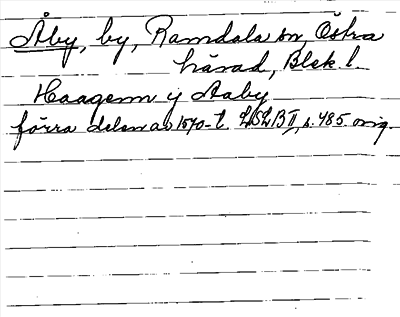 Åby, by, Ramdala sn, Östra
härad, Blek. l.
Haagenn y Aaby
förra delen av 1570-t. LSLB II, s. 485. orig.